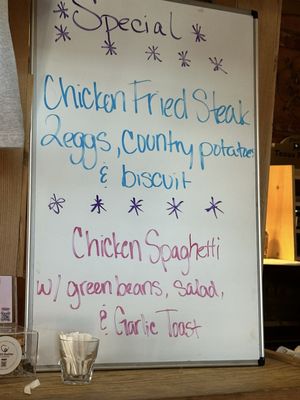 * Special *
* * * * *
Chicken Fried Steak
2eggs, country potatoes
& biscuit
* * * * *
Chicken Spaghetti
w/ green beans, salad,
& Garlic Toast